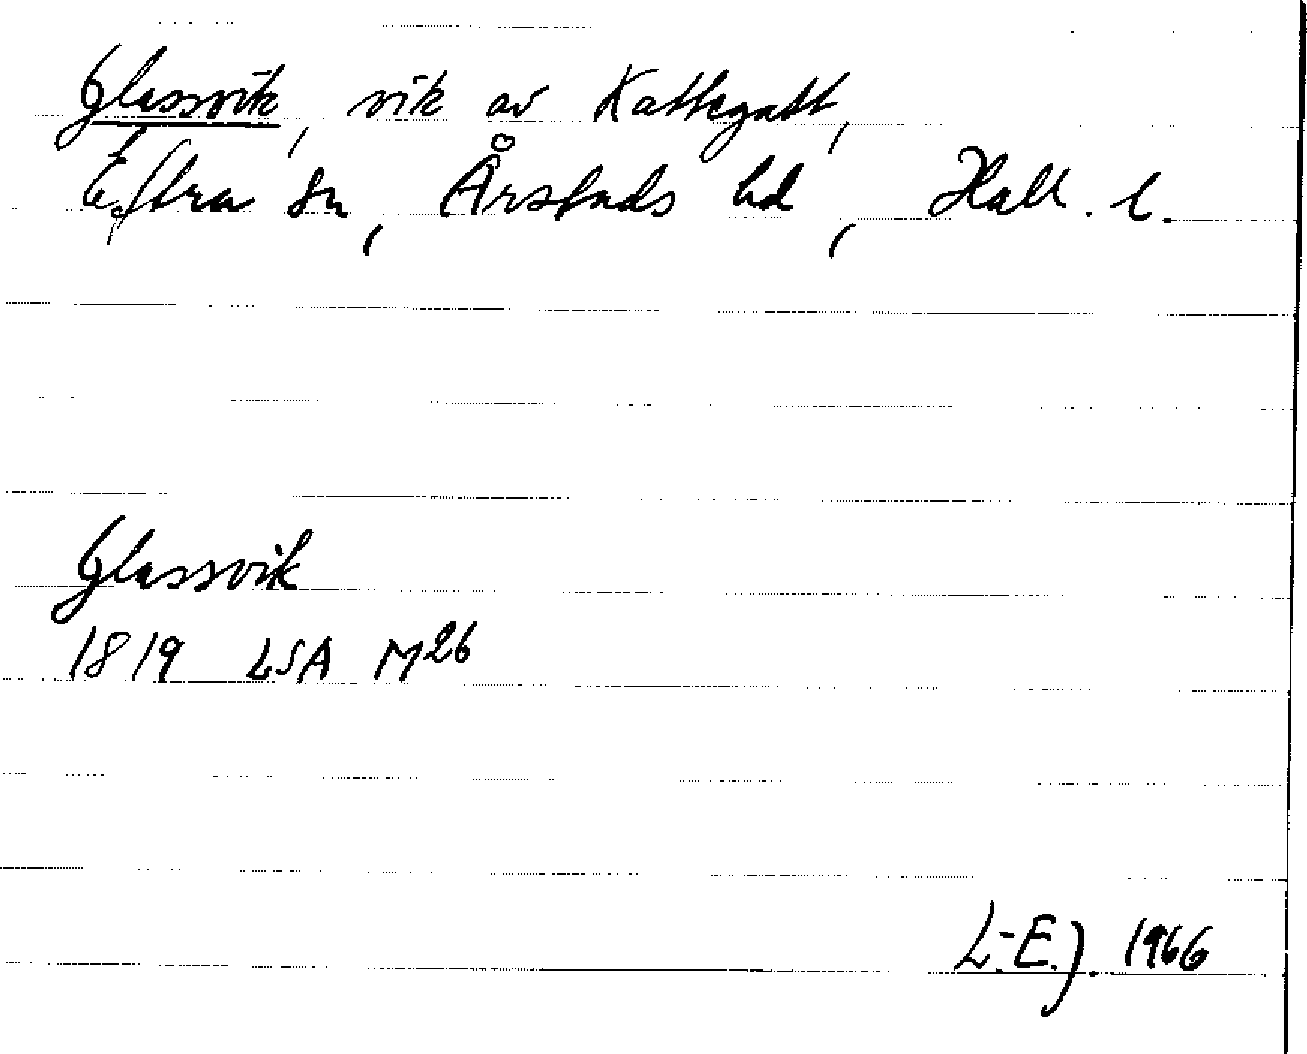 Glassvik, vik av Kattegatt,
Eftra sn, Årstads hd, Hall. l.
Glassvik
1819 LSA M26
L.-E.J. 1966